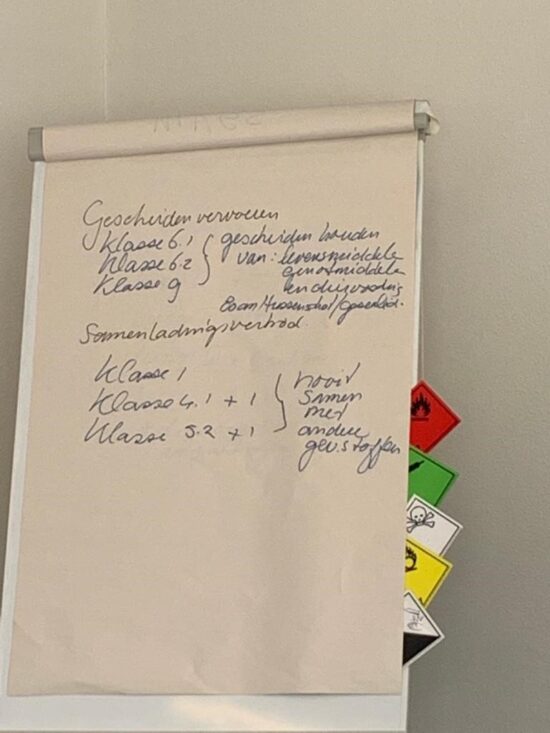 Gescheiden vervoeren
Klasse 6.1 gescheiden houden
Klasse 6.2 van: levensmiddele
Klasse 9 genotmiddele
en diervoeding
Samenladingsverbod.
Klasse 1 nooit
Klasse 4.1 + 1 samen
met
Klasse 5.2 + 1 andere
gev.stoffen